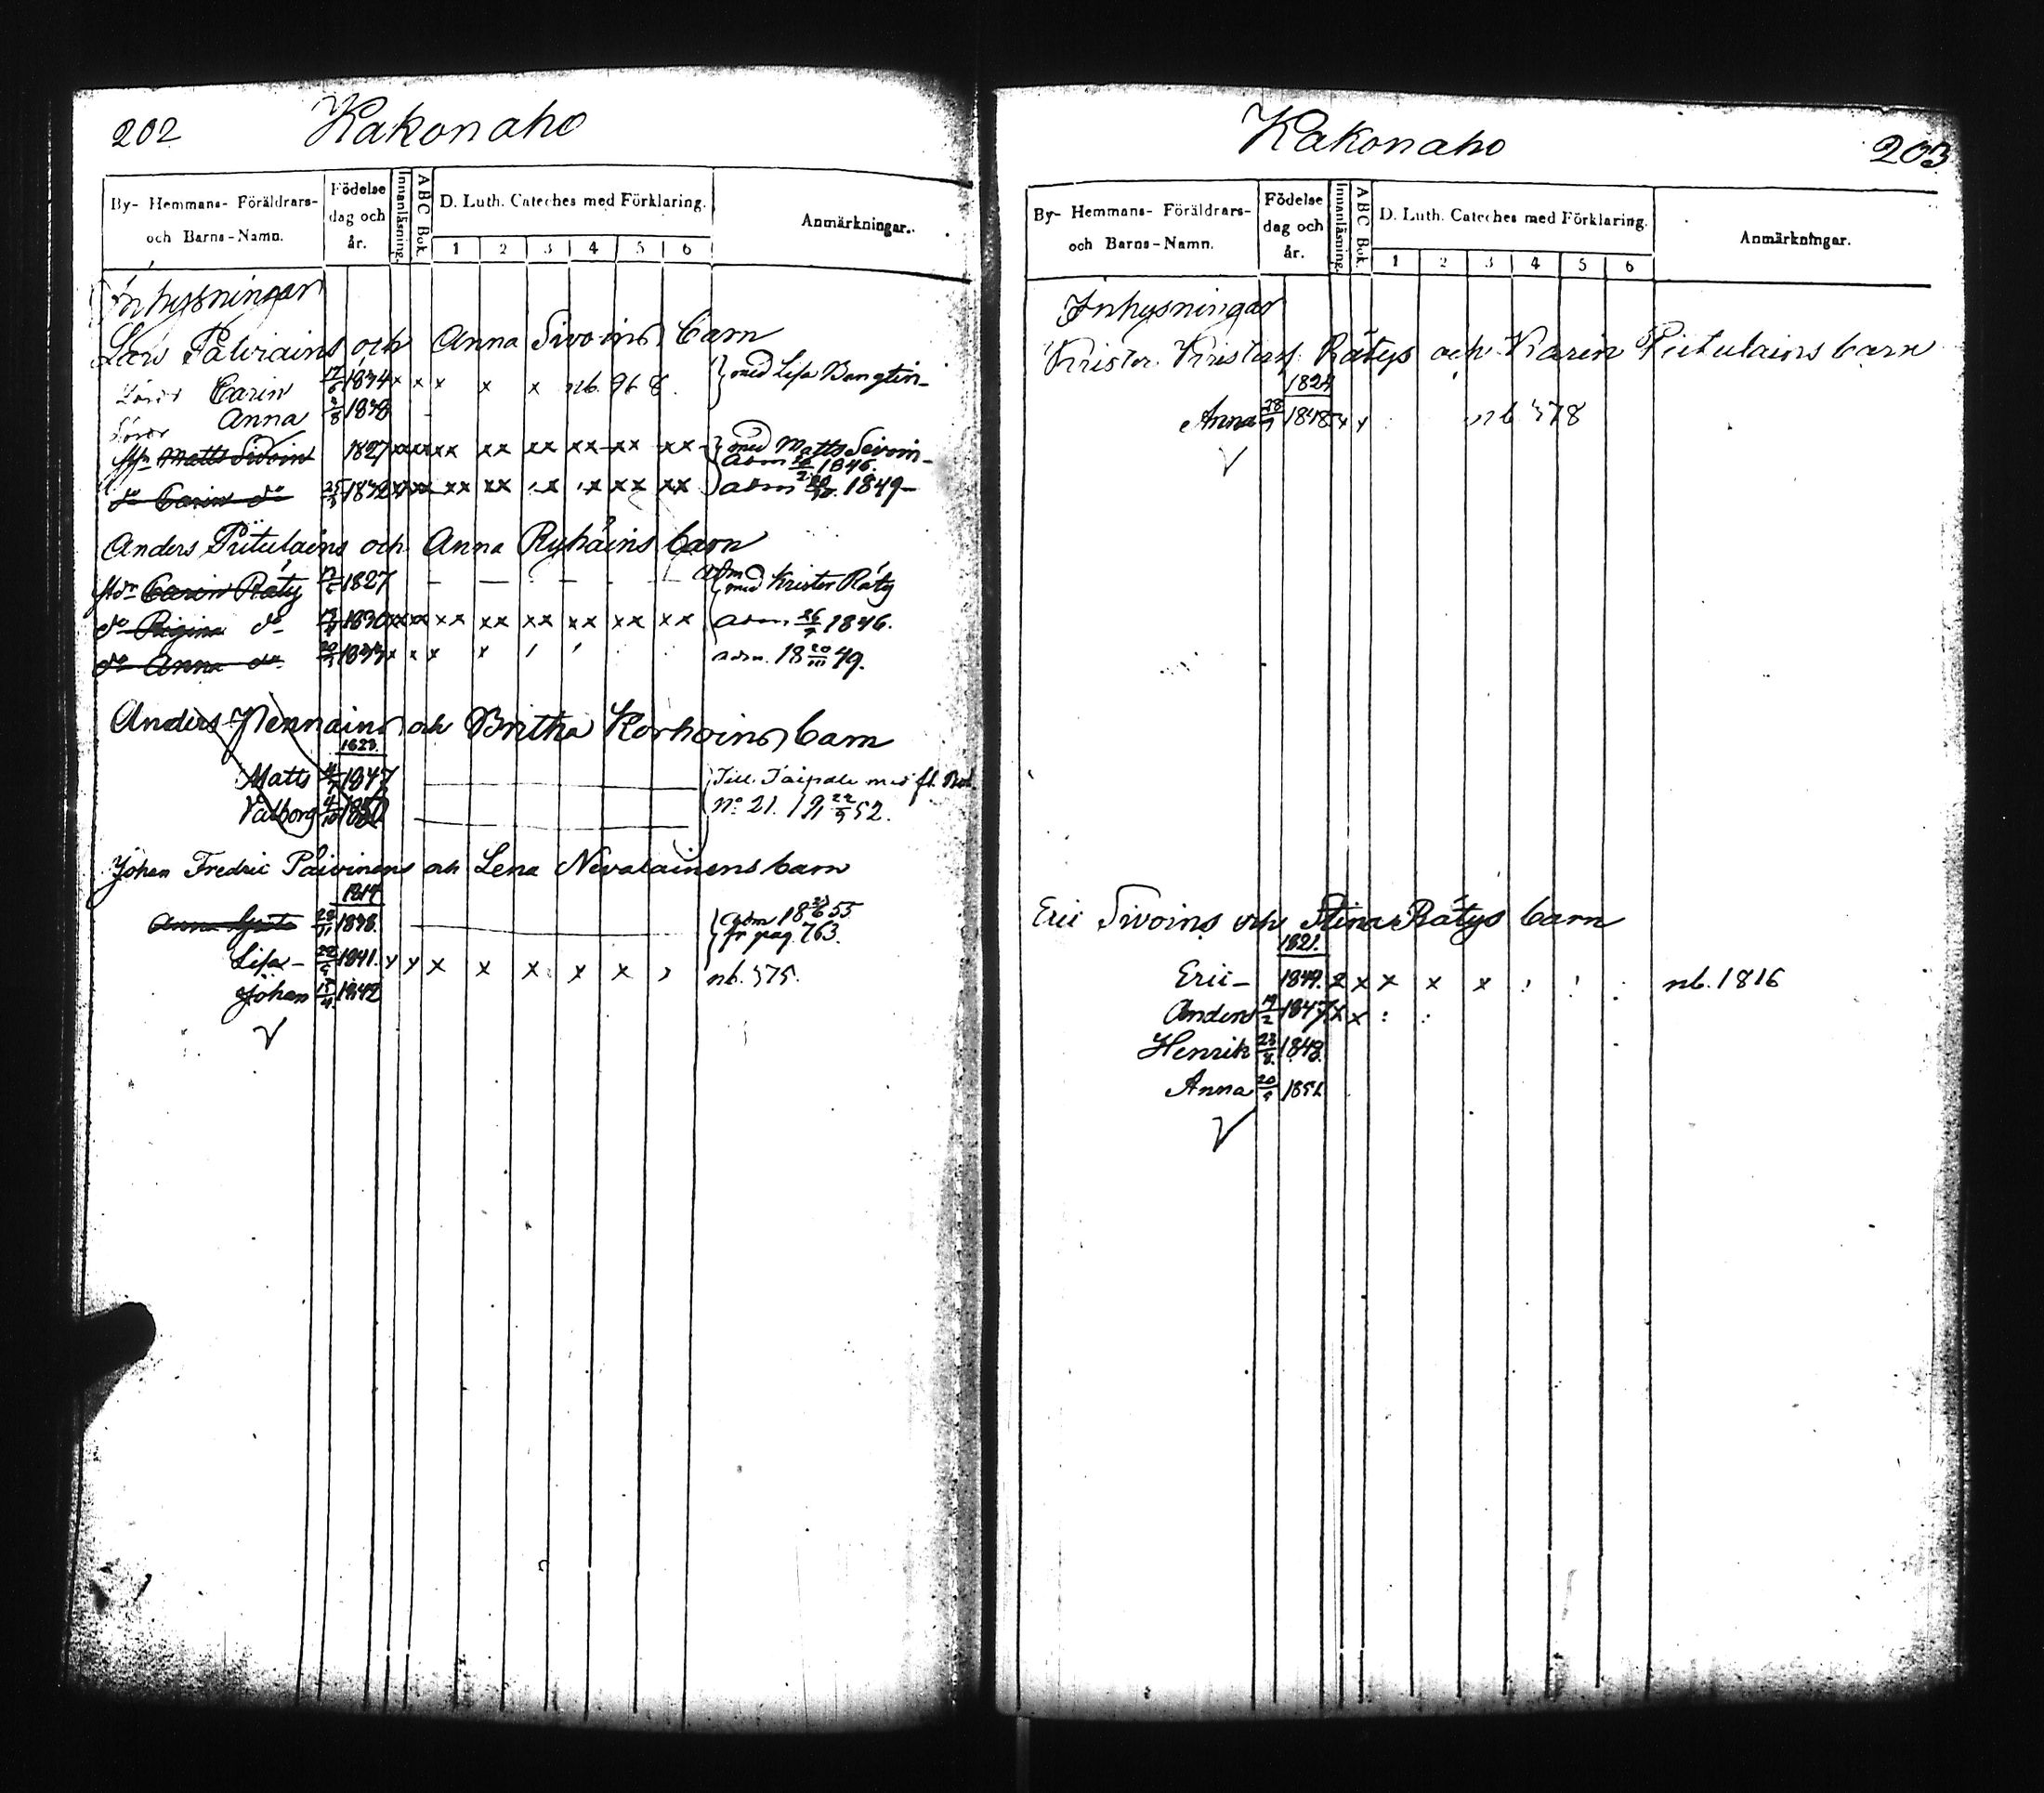 202 Kakonaho
By- Hemmans- Föräldrars- och Barns-Namn.
Födelse dag och år.
Innanläsning.
ABC Bok.
D. Luth. Cateches med Förklaring.
1 2 3 4 5 6
Anmärkningar.
Inhysningar
Lars och Anna Sivoins barn
Carin 17/6 1834 x x x x x nb. 968. med Lisa Bengtin
Anna 1838
Matts Sivoin 1827 xx xx xx xx xx xx xx xx med Matts Sivoin adm 1846.
do Carin do 1832 xx xx xx xx x x xx xx adm 1849
Anders Piitulains och Anna Ryhäins barn
Carin Räty 1827 — — — — adm med Krister Räty
do Regina do 1830 xx xx xx xx xx xx xx xx adm. 26/7 1846.
do Anna do 1833 x x x x adm. 18 20/10 49.
Anders Nennains och Britha Korhoins barn
1823.
Matts 1847 Till Taipale med fl. Bet.
Valborg 1850 No 21. 18 22/9 52.
Johan Fredric Päivinens och Lena Nevalainens barn
1814
Anna 1838. adm 18 55 fr pag. 763.
Lisa 1841. x x x x x x x , nb. 575.
Johan 1842
V
Kakonaho 203
By- Hemmans- Föräldrars- och Barns-Namn.
Födelse dag och år.
Innanläsning.
ABC Bok.
D. Luth. Cateches med Förklaring.
1 2 3 4 5 6
Anmärkningar.
Inhysningar
Krister Kristerss. Rätys och Karin Piitulains barn
1824
Anna 28/9 1848 x x nb 578
V
Eric Sivoins och Stina Rätys barn
1821.
Eric 1849. x x x x x nb. 1816
Anders 19/2 1847 x x
Henrik 23/8 1848.
Anna 1851
V